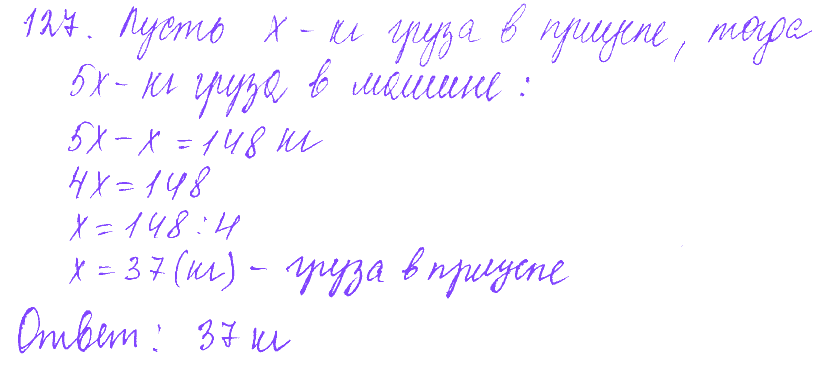 127. Пусть x - кг груза в прицепе, тогда
5x - кг груза в машине:
5x - x = 148 кг
4x = 148
x = 148 : 4
x = 37 (кг) - груза в прицепе
Ответ: 37 кг